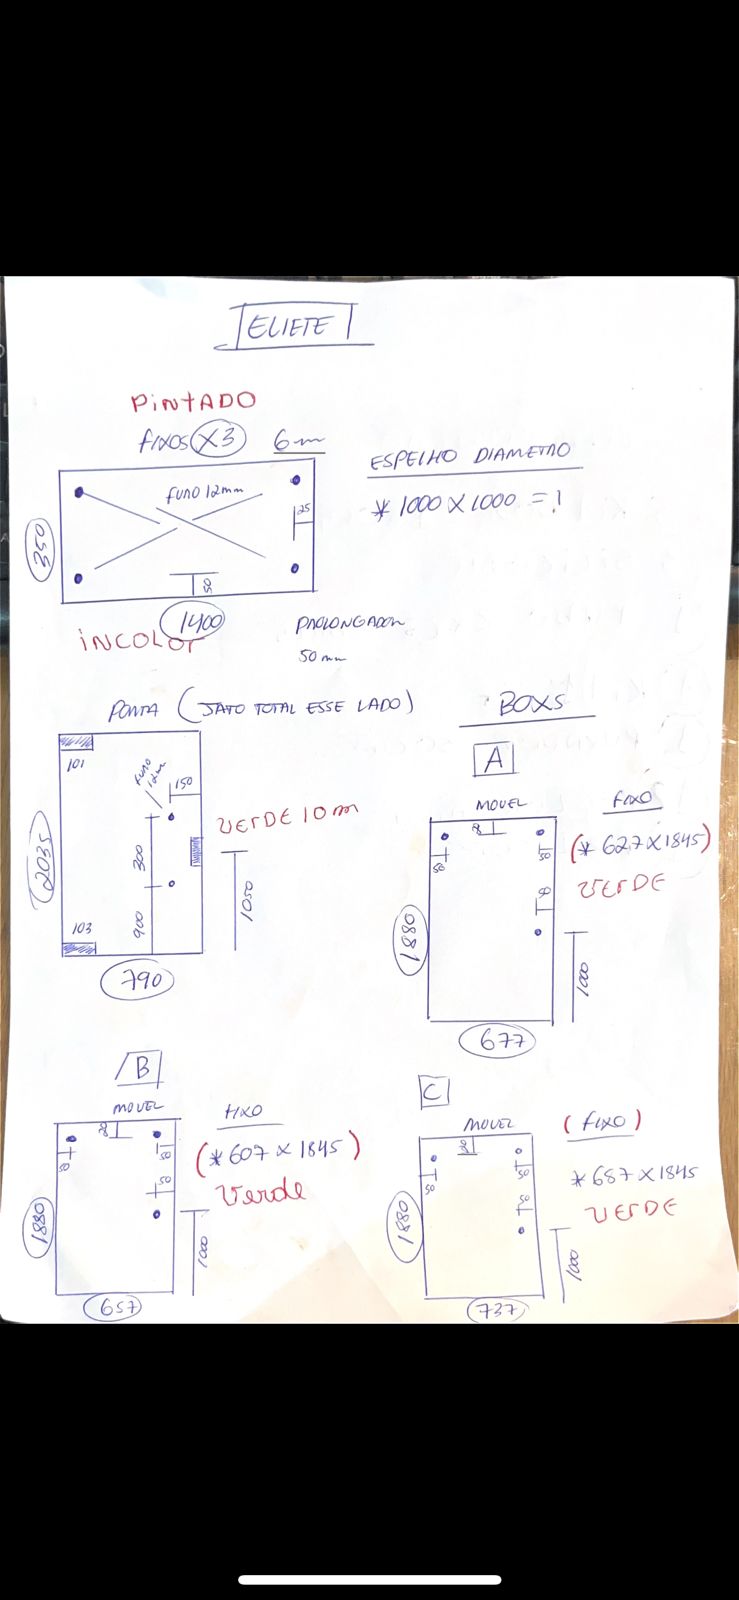 ELIETE
PiNtADO
FIXOS X3 6m
FURO 12mm
25
350
50
1400
iNCOLOr
ESPELHO DIAMETRO
* 1000 X 1000 = 1
PROLONGADOR
50 mm
PORTA (JATO TOTAL ESSE LADO)
101
FURO 12mm
150
300
2035
900
103
790
1050
VErDE 10 m
BOXS
A
MOVEL
50
50
1880
1000
677
FIXO
(* 627 X 1845)
VErDE
B
MOVEL
50
50
50
1880
1000
657
FIXO
(* 607 X 1845)
Verde
C
MOVEL
50
50
1880
1000
737
(FIXO)
* 687 X 1845
VErDE